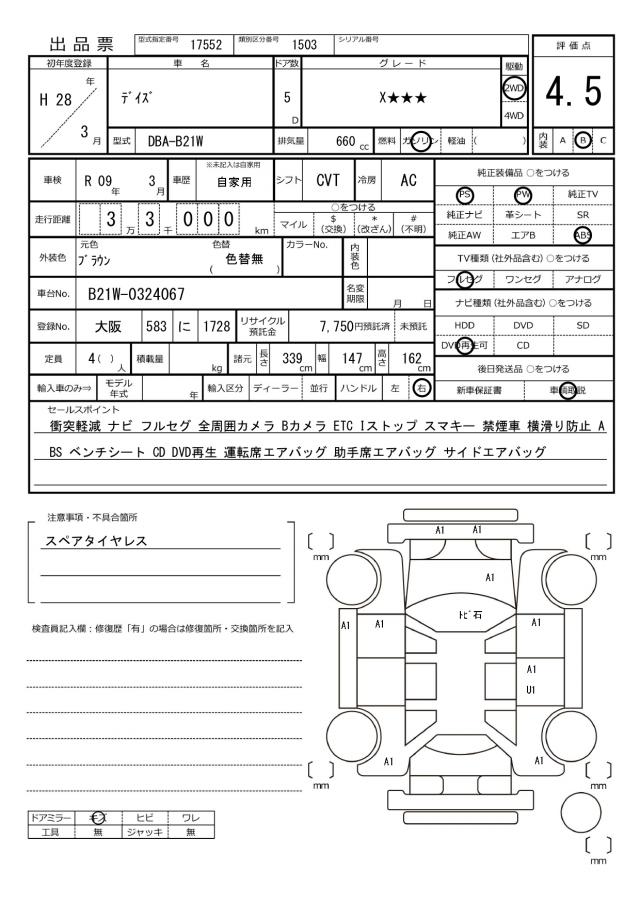 出品票 型式指定番号 17552 類別区分番号 1503 シリアル番号
評価点
4.5
内装 A B C
初年度登録 車名 ドア数 グレード 駆動
H 28 年 3 月
ﾃﾞｲｽﾞ 5 D X★★★ 2WD 4WD
型式 DBA-B21W 排気量 660 cc 燃料 ガソリン 軽油 ( )
車検 R 09 年 3 月 車歴 ※未記入は自家用 自家用 シフト CVT 冷房 AC
走行距離 3 3 万 千 0 0 0 km
○をつける
マイル $(交換) *(改ざん) #(不明)
外装色 元色 ﾌﾞﾗｳﾝ 色替 ( 色替無 ) カラーNo. 内装色
車台No. B21W-0324067 名変期限 月 日
登録No. 大阪 583 に 1728 リサイクル預託金 7,750円預託済 未預託
定員 4( ) 人 積載量 kg 諸元 長さ 339 cm 幅 147 cm 高さ 162 cm
輸入車のみ⇒ モデル年式 年 輸入区分 ディーラー 並行 ハンドル 左 右
純正装備品 ○をつける
PS PW 純正TV
純正ナビ 革シート SR
純正AW エアB ABS
TV種類(社外品含む) ○をつける
フルセグ ワンセグ アナログ
ナビ種類(社外品含む) ○をつける
HDD DVD SD
DVD再生可 CD
後日発送品 ○をつける
新車保証書 車輌取説
セールスポイント
衝突軽減 ナビ フルセグ 全周囲カメラ Bカメラ ETC Iストップ スマキー 禁煙車 横滑り防止 A
BS ベンチシート CD DVD再生 運転席エアバッグ 助手席エアバッグ サイドエアバッグ
注意事項・不具合箇所
スペアタイヤレス
検査員記入欄：修復歴「有」の場合は修復箇所・交換箇所を記入
ドアミラー キズ ヒビ ワレ
工具 無 ジャッキ 無
A1 A1
〔 〕mm 〔 〕mm
A1
ﾄﾋﾞ石
A1 A1 A1
A1
U1
A1 A1
〔 〕mm 〔 〕mm
〔 〕mm